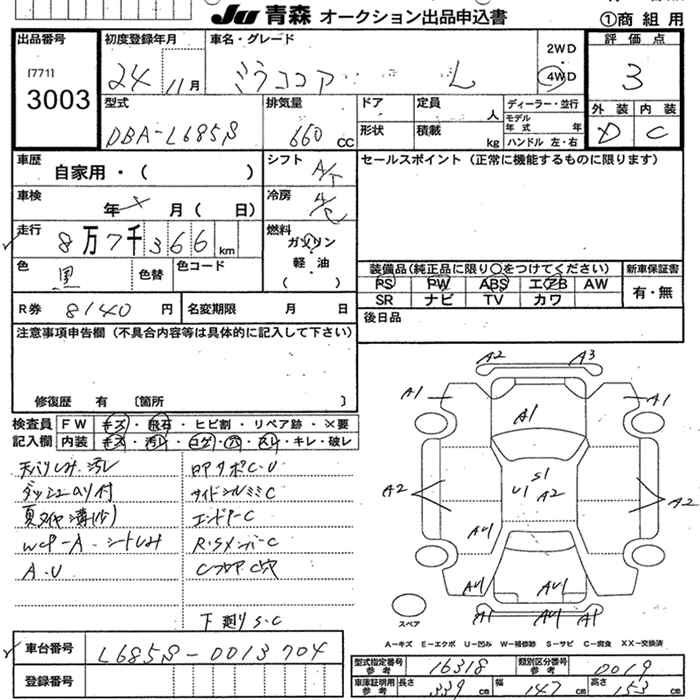 JU 青森 オークション出品申込書
①商組用
出品番号
[771]
3003
初度登録年月
24 11月
車名・グレード
ミラココア L
2WD
4WD
評価点
3
外装 内装
D C
型式
DBA-L685S
排気量
660 CC
ドア
形状
定員 人
積載 kg
ディーラー・並行
モデル年式 年
ハンドル 左・右
車歴
自家用・( )
シフト
A/T
セールスポイント(正常に機能するものに限ります)
車検
年 月( 日)
冷房
A/C
走行
8万7千366 km
燃料
ガソリン
軽・油
( )
色
黒
色替
色コード
装備品(純正品に限り○をつけてください)
PS PW ABS エアB AW
SR ナビ TV カワ
新車保証書
有・無
R券 8140円
名変期限 月 日
後日品
注意事項申告欄(不具合内容等は具体的に記入して下さい)
修復歴 有 〔箇所 〕
検査員
記入欄
FW キズ・飛石・ヒビ割・リペア跡・×要
内装 キズ・汚レ・コゲ・穴・スレ・キレ・破レ
天バリしみ、汚レ
ダッシュのり付
WCP-A・シートしみ
A・U
ロアサポC・U
サイドシルミミC
エンドアーC
R・SメンバーC
CフロアC穴
下廻りS・C
A2 A3
A1 A1
A1
A2 A2
S1
U1 A2
AU1
AU1 AU1
AU1 A1
スペア
A-キズ E-エクボ U-凹み W-補修跡 S-サビ C-腐食 XX-交換済
車台番号
L685S-0013704
登録番号
型式指定番号 参考
16318
類別区分番号 参考
0019
車庫証明用 参考
長さ 339 cm 幅 147 cm 高さ 153 cm